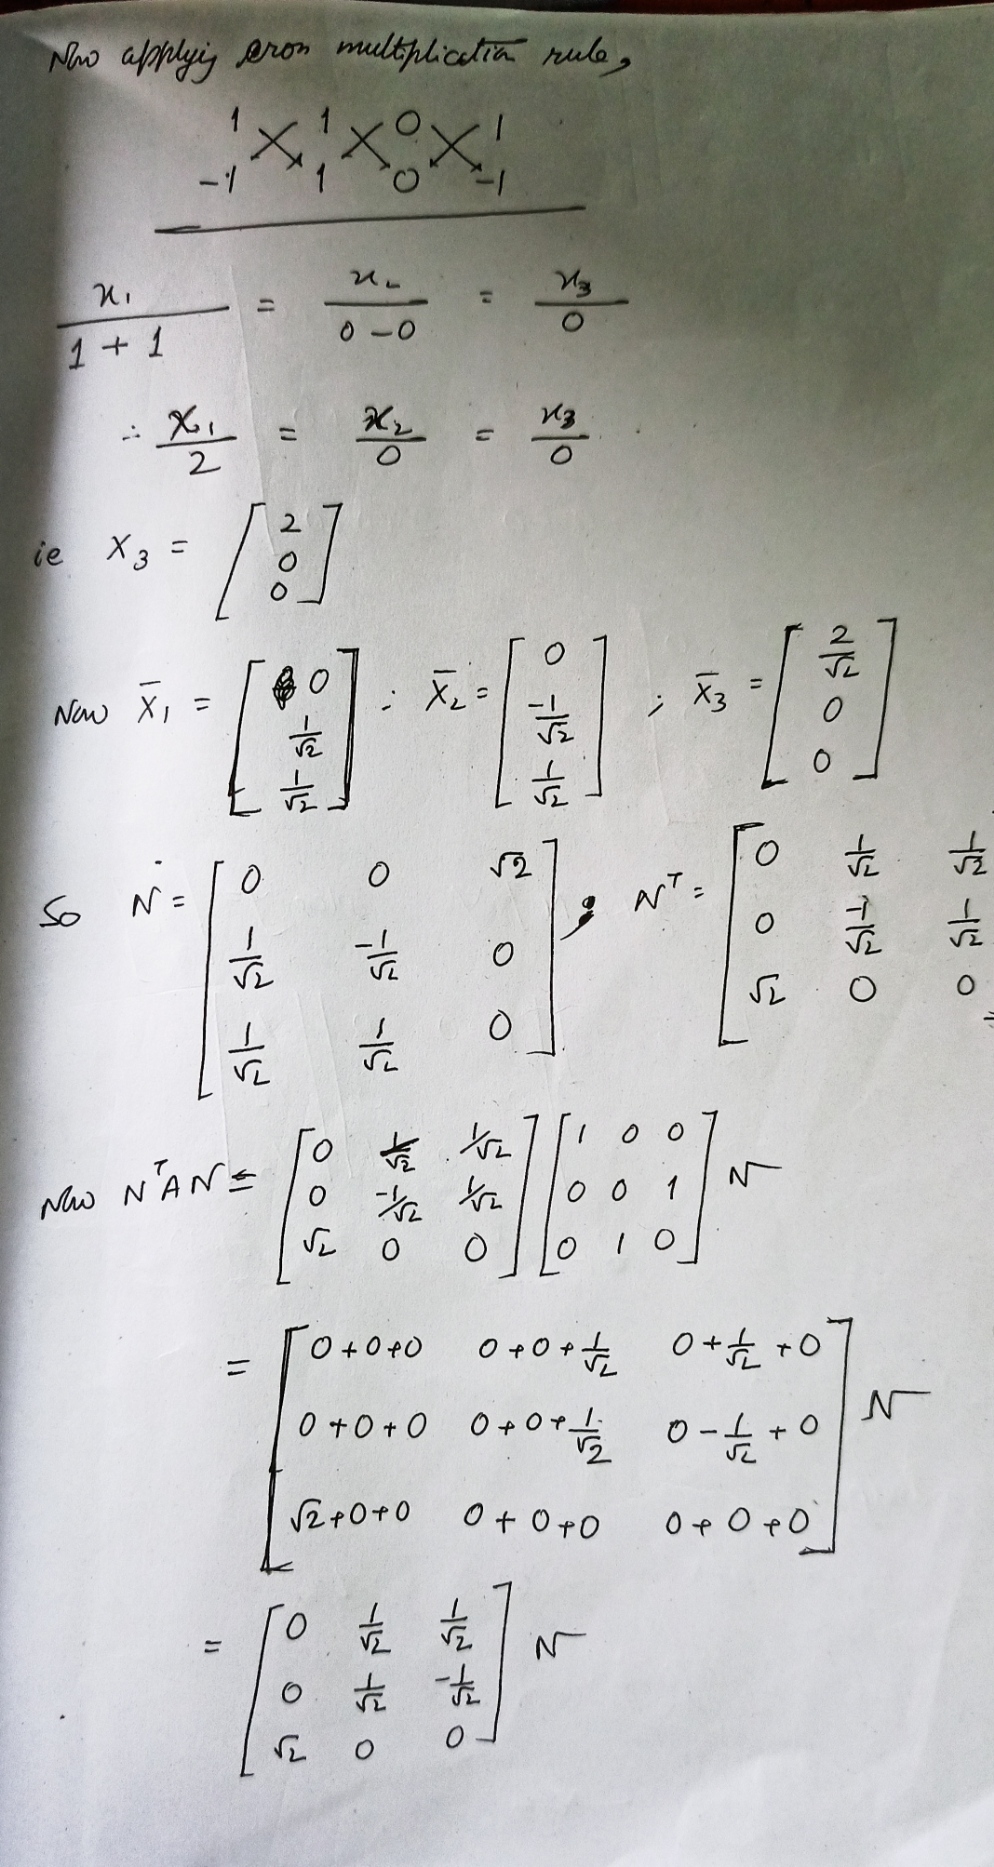 Now applying cross multiplication rule,
1 1 0 1
-1 1 0 -1
x₁/(1 + 1) = x₂/(0 - 0) = x₃/0
∴ x₁/2 = x₂/0 = x₃/0
ie X₃ = [2; 0; 0]
Now X̄₁ = [0; 1/√2; 1/√2] ; X̄₂ = [0; -1/√2; 1/√2] ; X̄₃ = [2/√2; 0; 0]
So N = [0 0 √2; 1/√2 -1/√2 0; 1/√2 1/√2 0] ; Nᵀ = [0 1/√2 1/√2; 0 -1/√2 1/√2; √2 0 0]
Now NᵀAN = [0 1/√2 1/√2; 0 -1/√2 1/√2; √2 0 0] [1 0 0; 0 0 1; 0 1 0] N
= [0+0+0 0+0+1/√2 0+1/√2+0; 0+0+0 0+0+1/√2 0-1/√2+0; √2+0+0 0+0+0 0+0+0] N
= [0 1/√2 1/√2; 0 1/√2 -1/√2; √2 0 0] N